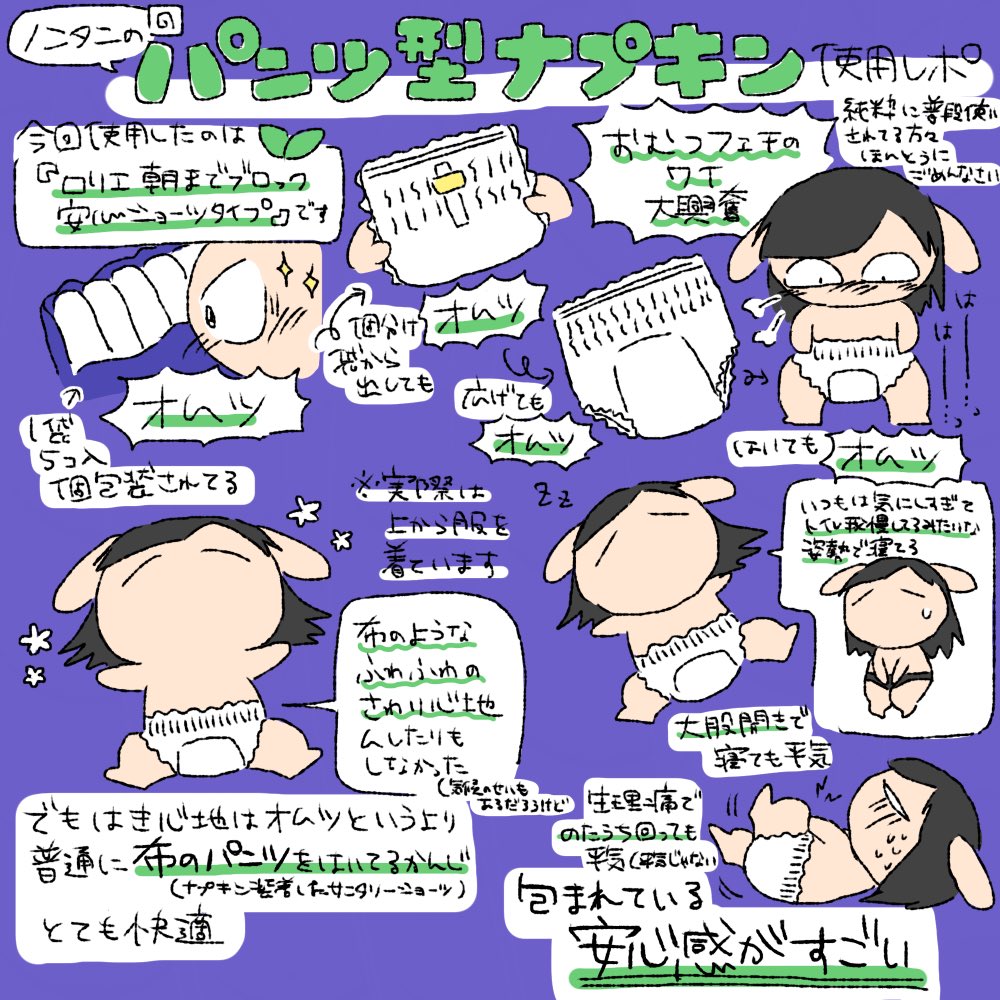 ノンタニの
パンツ型ナプキン
使用レポ
今回使用したのは
『ロリエ朝までブロック
安心ショーツタイプ』です
おむつフェチの
ワイ
大興奮
純粋に普段使い
されてる方々
ほんとうに
ごめんなさい
1袋
5コ入
個包装されてる
オムツ
個分け
袋から
出しても
オムツ
広げても
オムツ
はいても
オムツ
は
は
…っ
※実際は
上から服を
着ています
Zz
いつもは気にしすぎて
トイレ我慢してるみたいな
姿勢で寝てる
布のような
ふわふわの
さわり心地
ムレたりも
しなかった
(気候のせいも
あるだろうけど
大股開きで
寝ても平気
生理痛で
のたうち回っても
平気(平気じゃない
でもはき心地はオムツというより
普通に布のパンツをはいてるかんじ
(ナプキン装着したサニタリーショーツ)
とても快適
包まれている
安心感がすごい